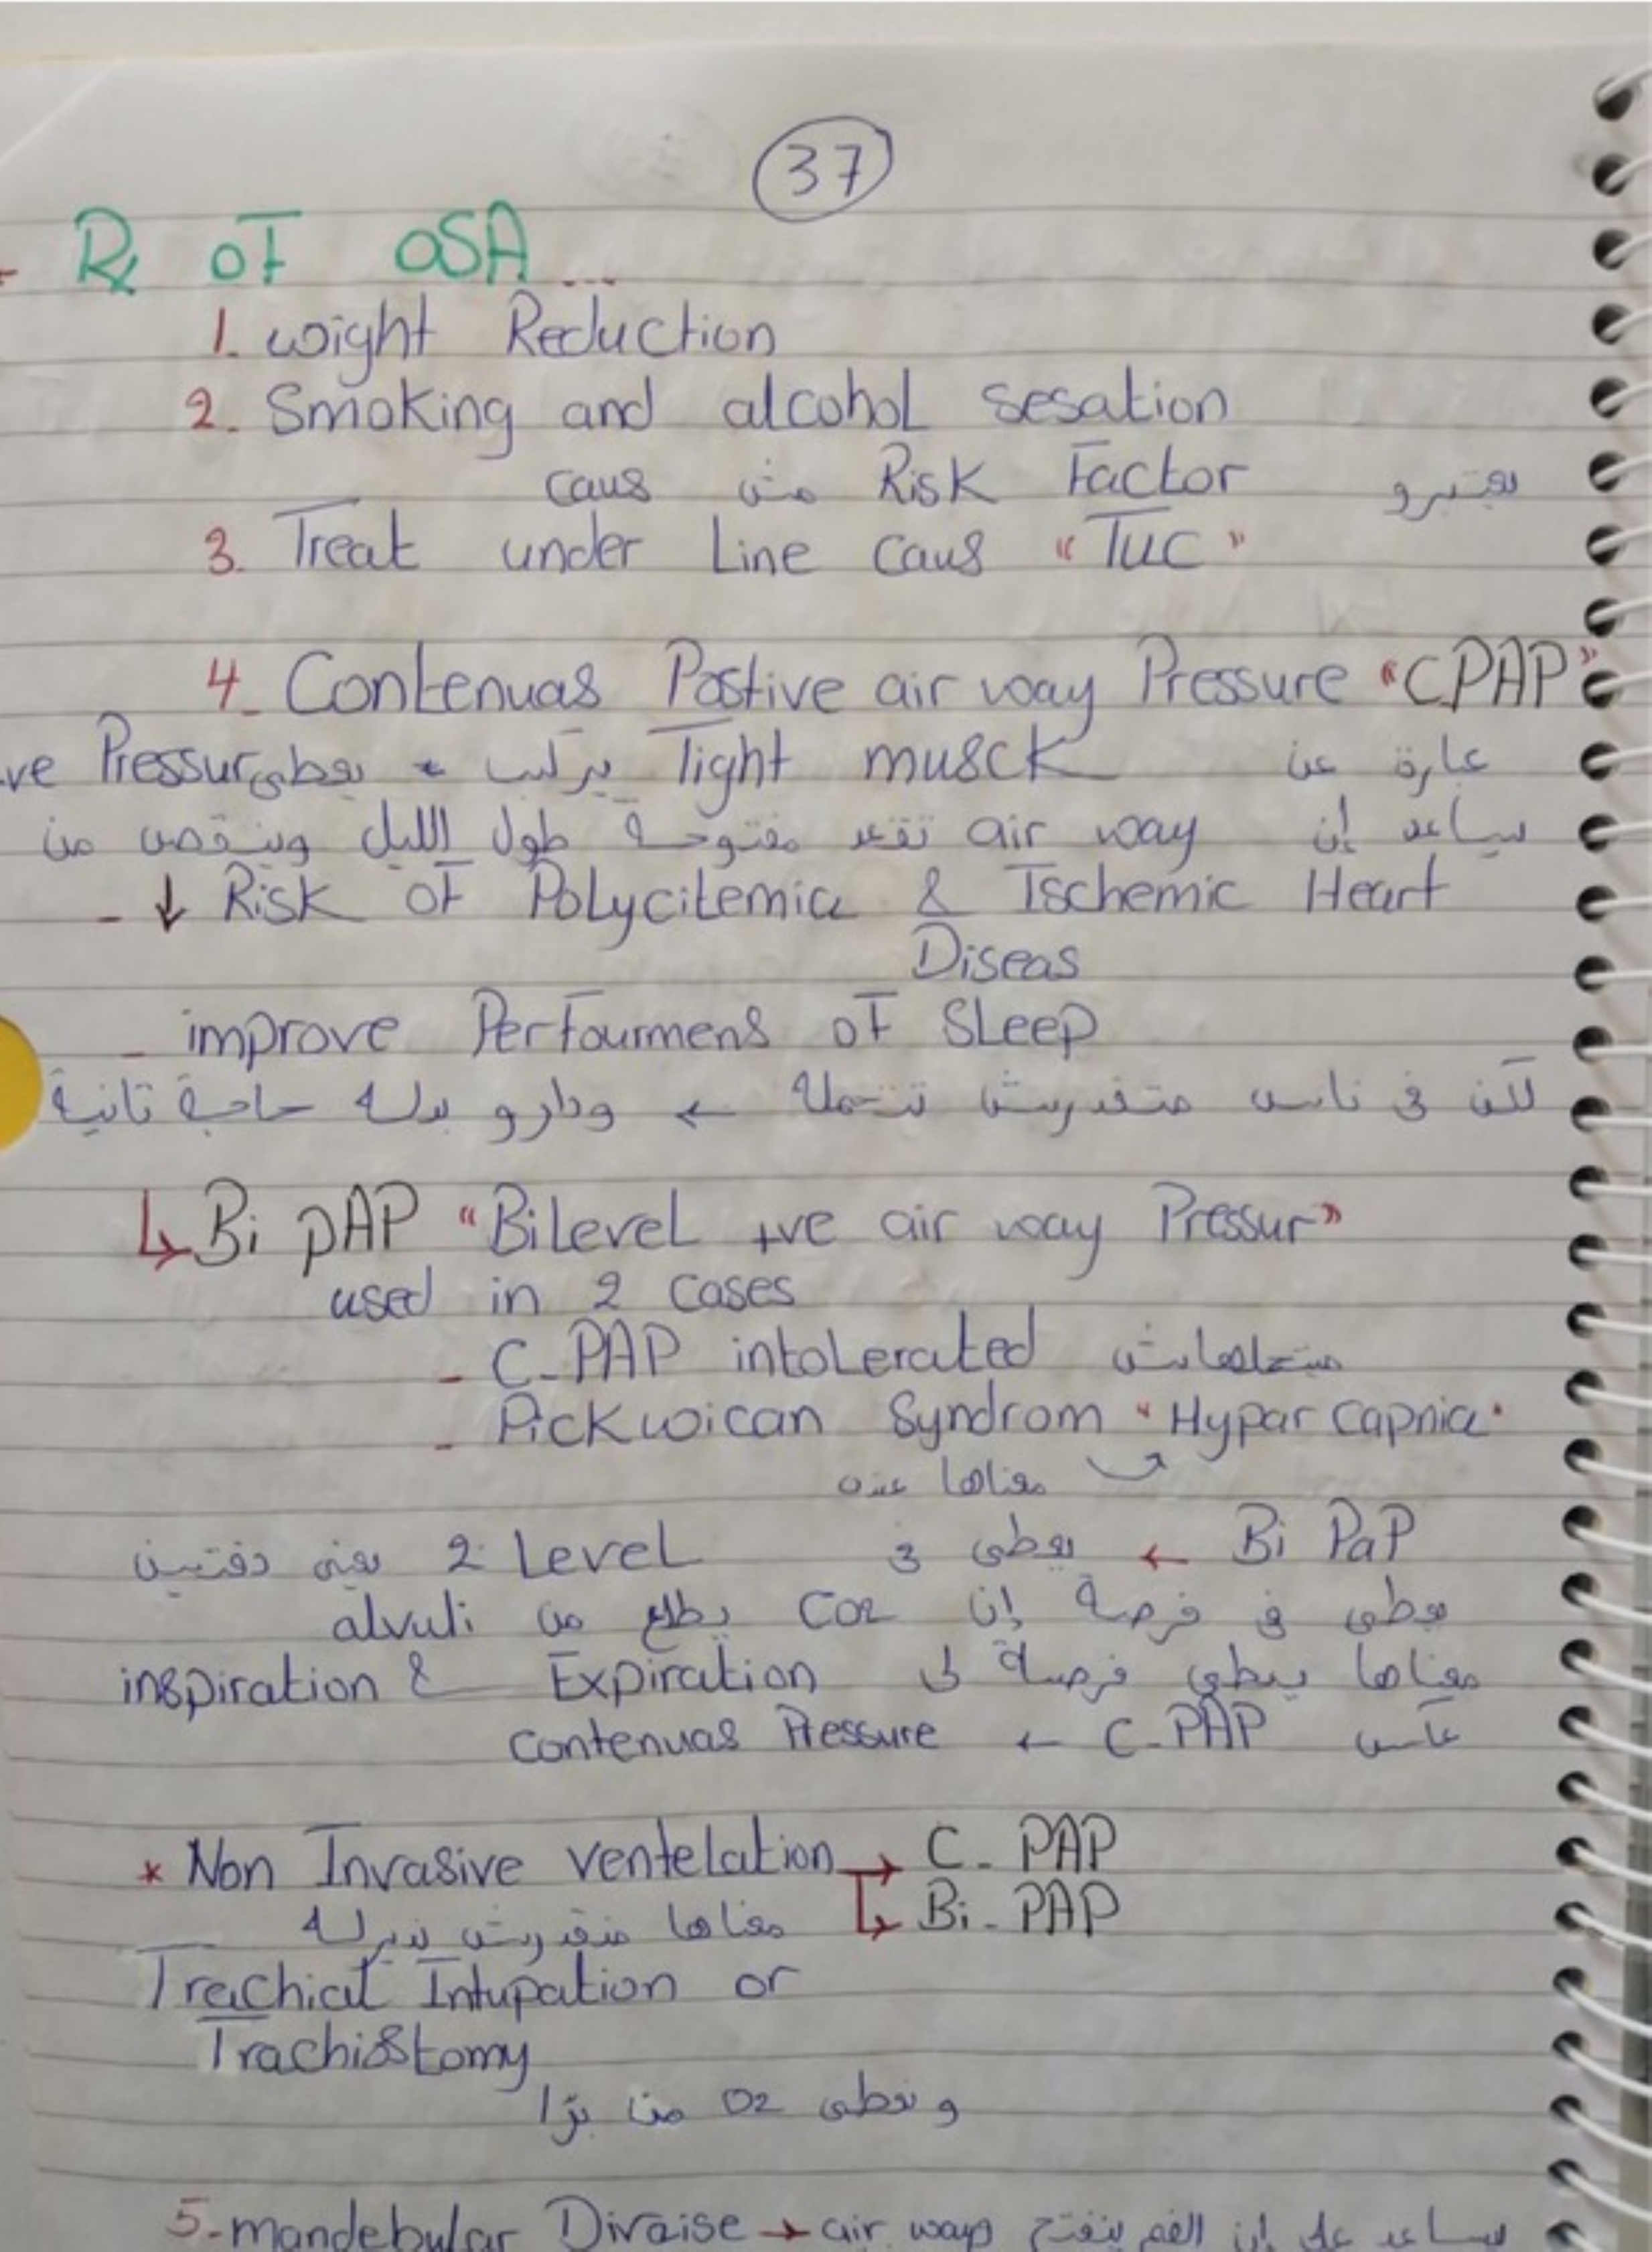 37
- Rx of OSA ...
1. wight Reduction
2. Smoking and alcohol sesation
يعتبرو Risk Factor مش caus
3. Treat under Line caus "TUC"
4- Contenuas Postive air way Pressure "C.PAP"
عبارة عن Tight musck يركب * يعطي ve Pressur
يساعد إن air way تقعد مفتوحة طول الليل وينقص من
- ↓ Risk of Polycitemia & Ischemic Heart
Diseas
- improve Perfourmens of Sleep
لكن في ناس متقدريش تتحمله ← ودارو بدله حاجة تانية
↳ Bi pAP "BiLevel +ve air way Pressur"
used in 2 cases
- C-PAP intolerated متحملهاش
- Pickwican Syndrom "Hypar capnia"
معناها عنده
Bi PaP ← يعطي في 2 Level يعني دفتين
يعطي في فرصة إن CO2 يطلع من alvuli
معناها يعطي فرصة لـ Expiration & inspiration
عكس C-PAP ← contenuas Pressure
* Non Invasive ventelation → C- PAP
↳ Bi- PAP
معناها منقدرش نديرله
Trachial Intupation or
Trachiostomy
و نعطي O2 من برّا
5- mandebular Divaise → air ways يساعد على إن الفم ينفتح